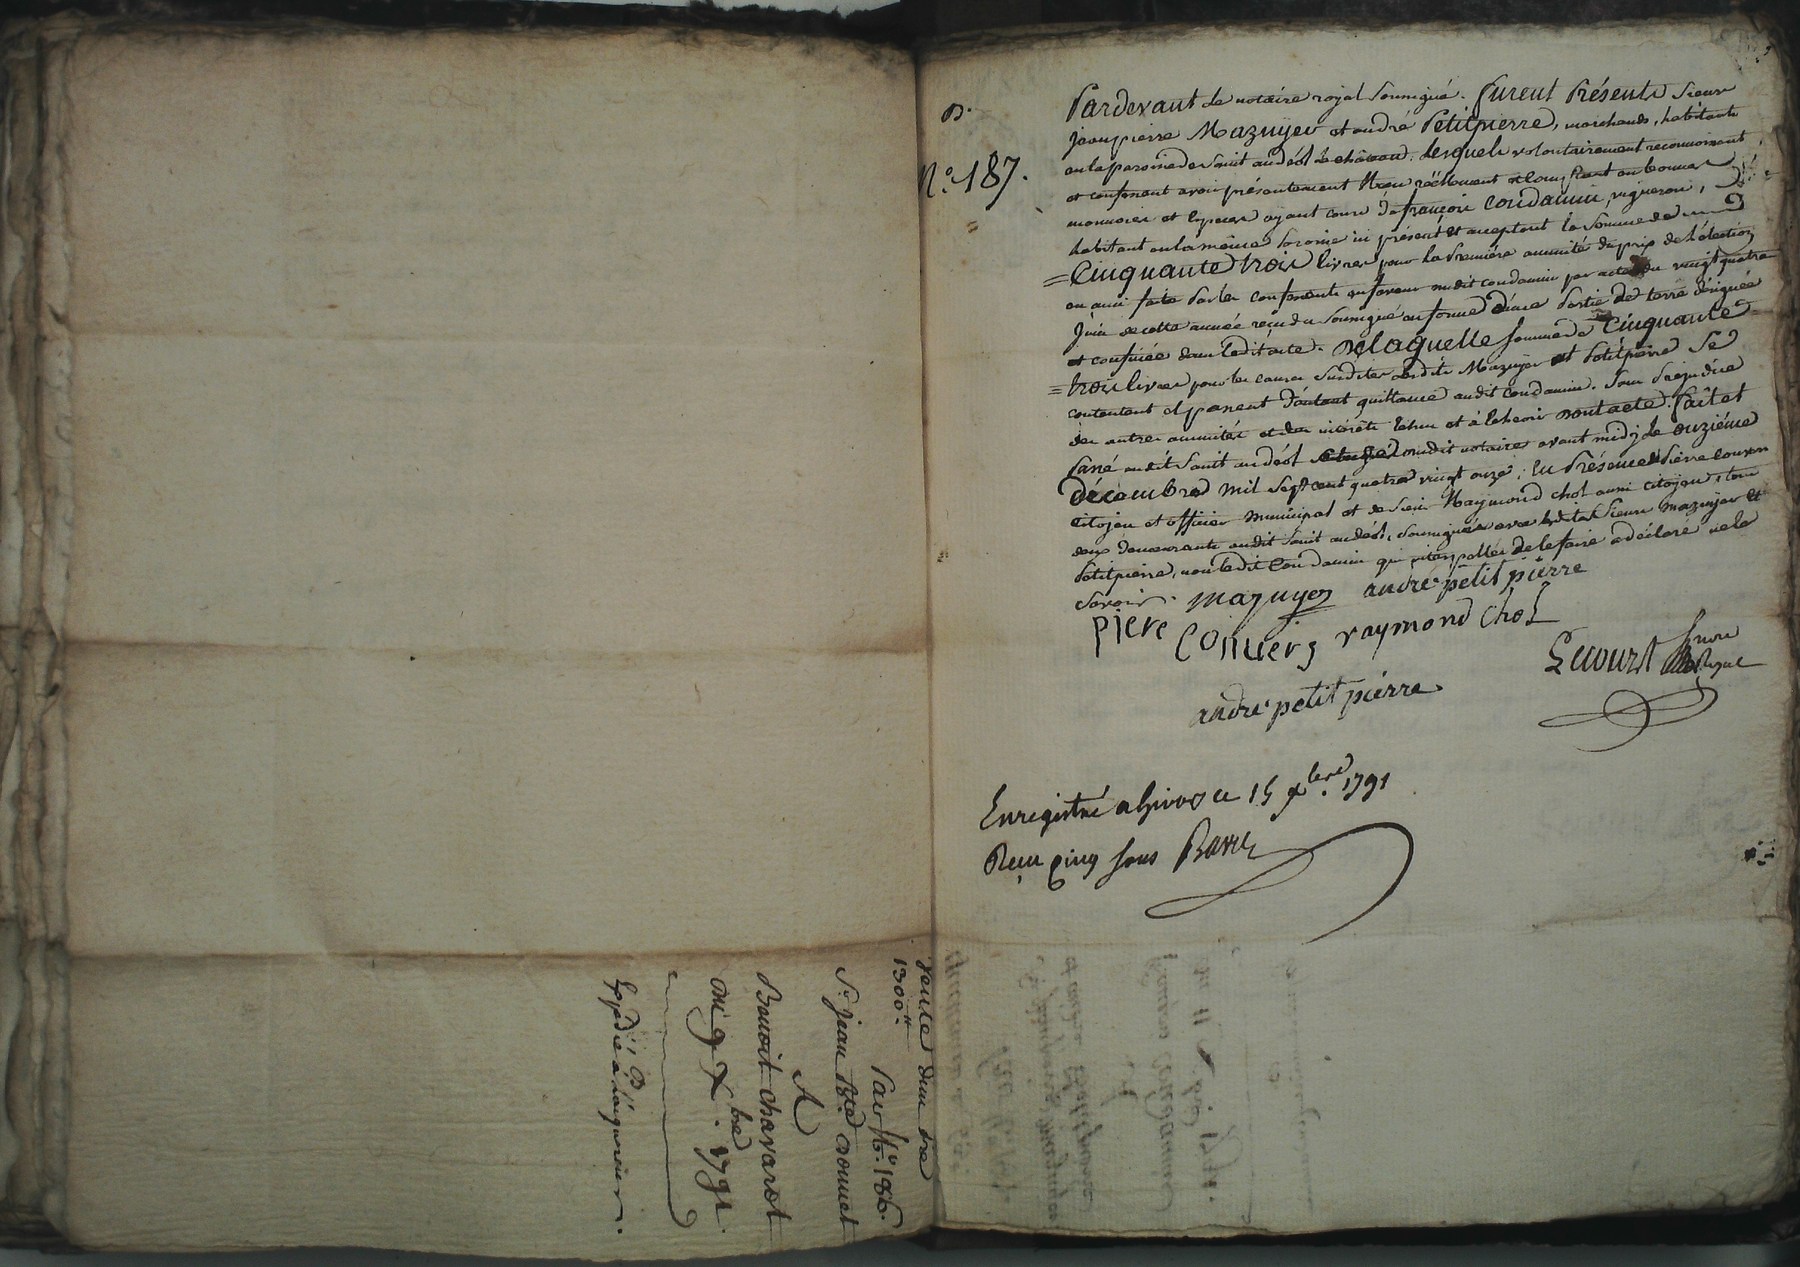 vente d'un tre
1300ᵗᵗ
Par
Sʳ jean Bte
A
Benoit chavarot
du 9 Xbre. 1791.
Eppédié à l'aquéreur.
B.
N.° 187.
Pardevant le notaire royal soussigné. furent Présents Sieurs
jean pierre Mazuyer et andré Petitpierre, marchands, habitants
en la paroisse de saint andéol le château. lesquels volontairement reconnoissent
et confessent avoir présentement Reçu réellement et comptant en bonnes
monnoies et especes ayant cours de françois Condamin, vigneron,
habitant en la même Paroisse ici présent et acceptant la somme de
= Cinquante trois livres pour la Premiére annuité du prix de l'élection
en ami faite Par les confessants en faveur dudit condamin par acte du vingt quatre
Juin de cette année reçu du soussigné en forme d'une Partie de terre désignée
et confinée dans ledit acte. De laquelle somme de Cinquante
= trois livres pour les causes susdites lesdits Mazuyer et Petitpierre se
contentent et passent d'autant quittance audit condamin. Sans Prejudice
des autres annuités et des intérêts échus et à échoir dont acte. fait et
Passé audit Saint andéol dudit notaire avant midy le onziéme
décembre mil sept cent quatre vingt onze; En Présence de Pierre Couvers
citoyen et officier municipal et de sieur Raymond chol aussi citoyen, tous
deux demeurants audit saint andéol, soussignés avec lesdits Sieurs mazuyer et
Petitpierre, non ledit Condamin qui interpellés de le faire a déclaré ne le
Savoir. mazuyer andré petit piérre
piere Couvers raymond chol
andré petit piérre
Lecourt
Enregistré a Givors ce 15 Xbre. 1791
Reçu cinq sous Barre